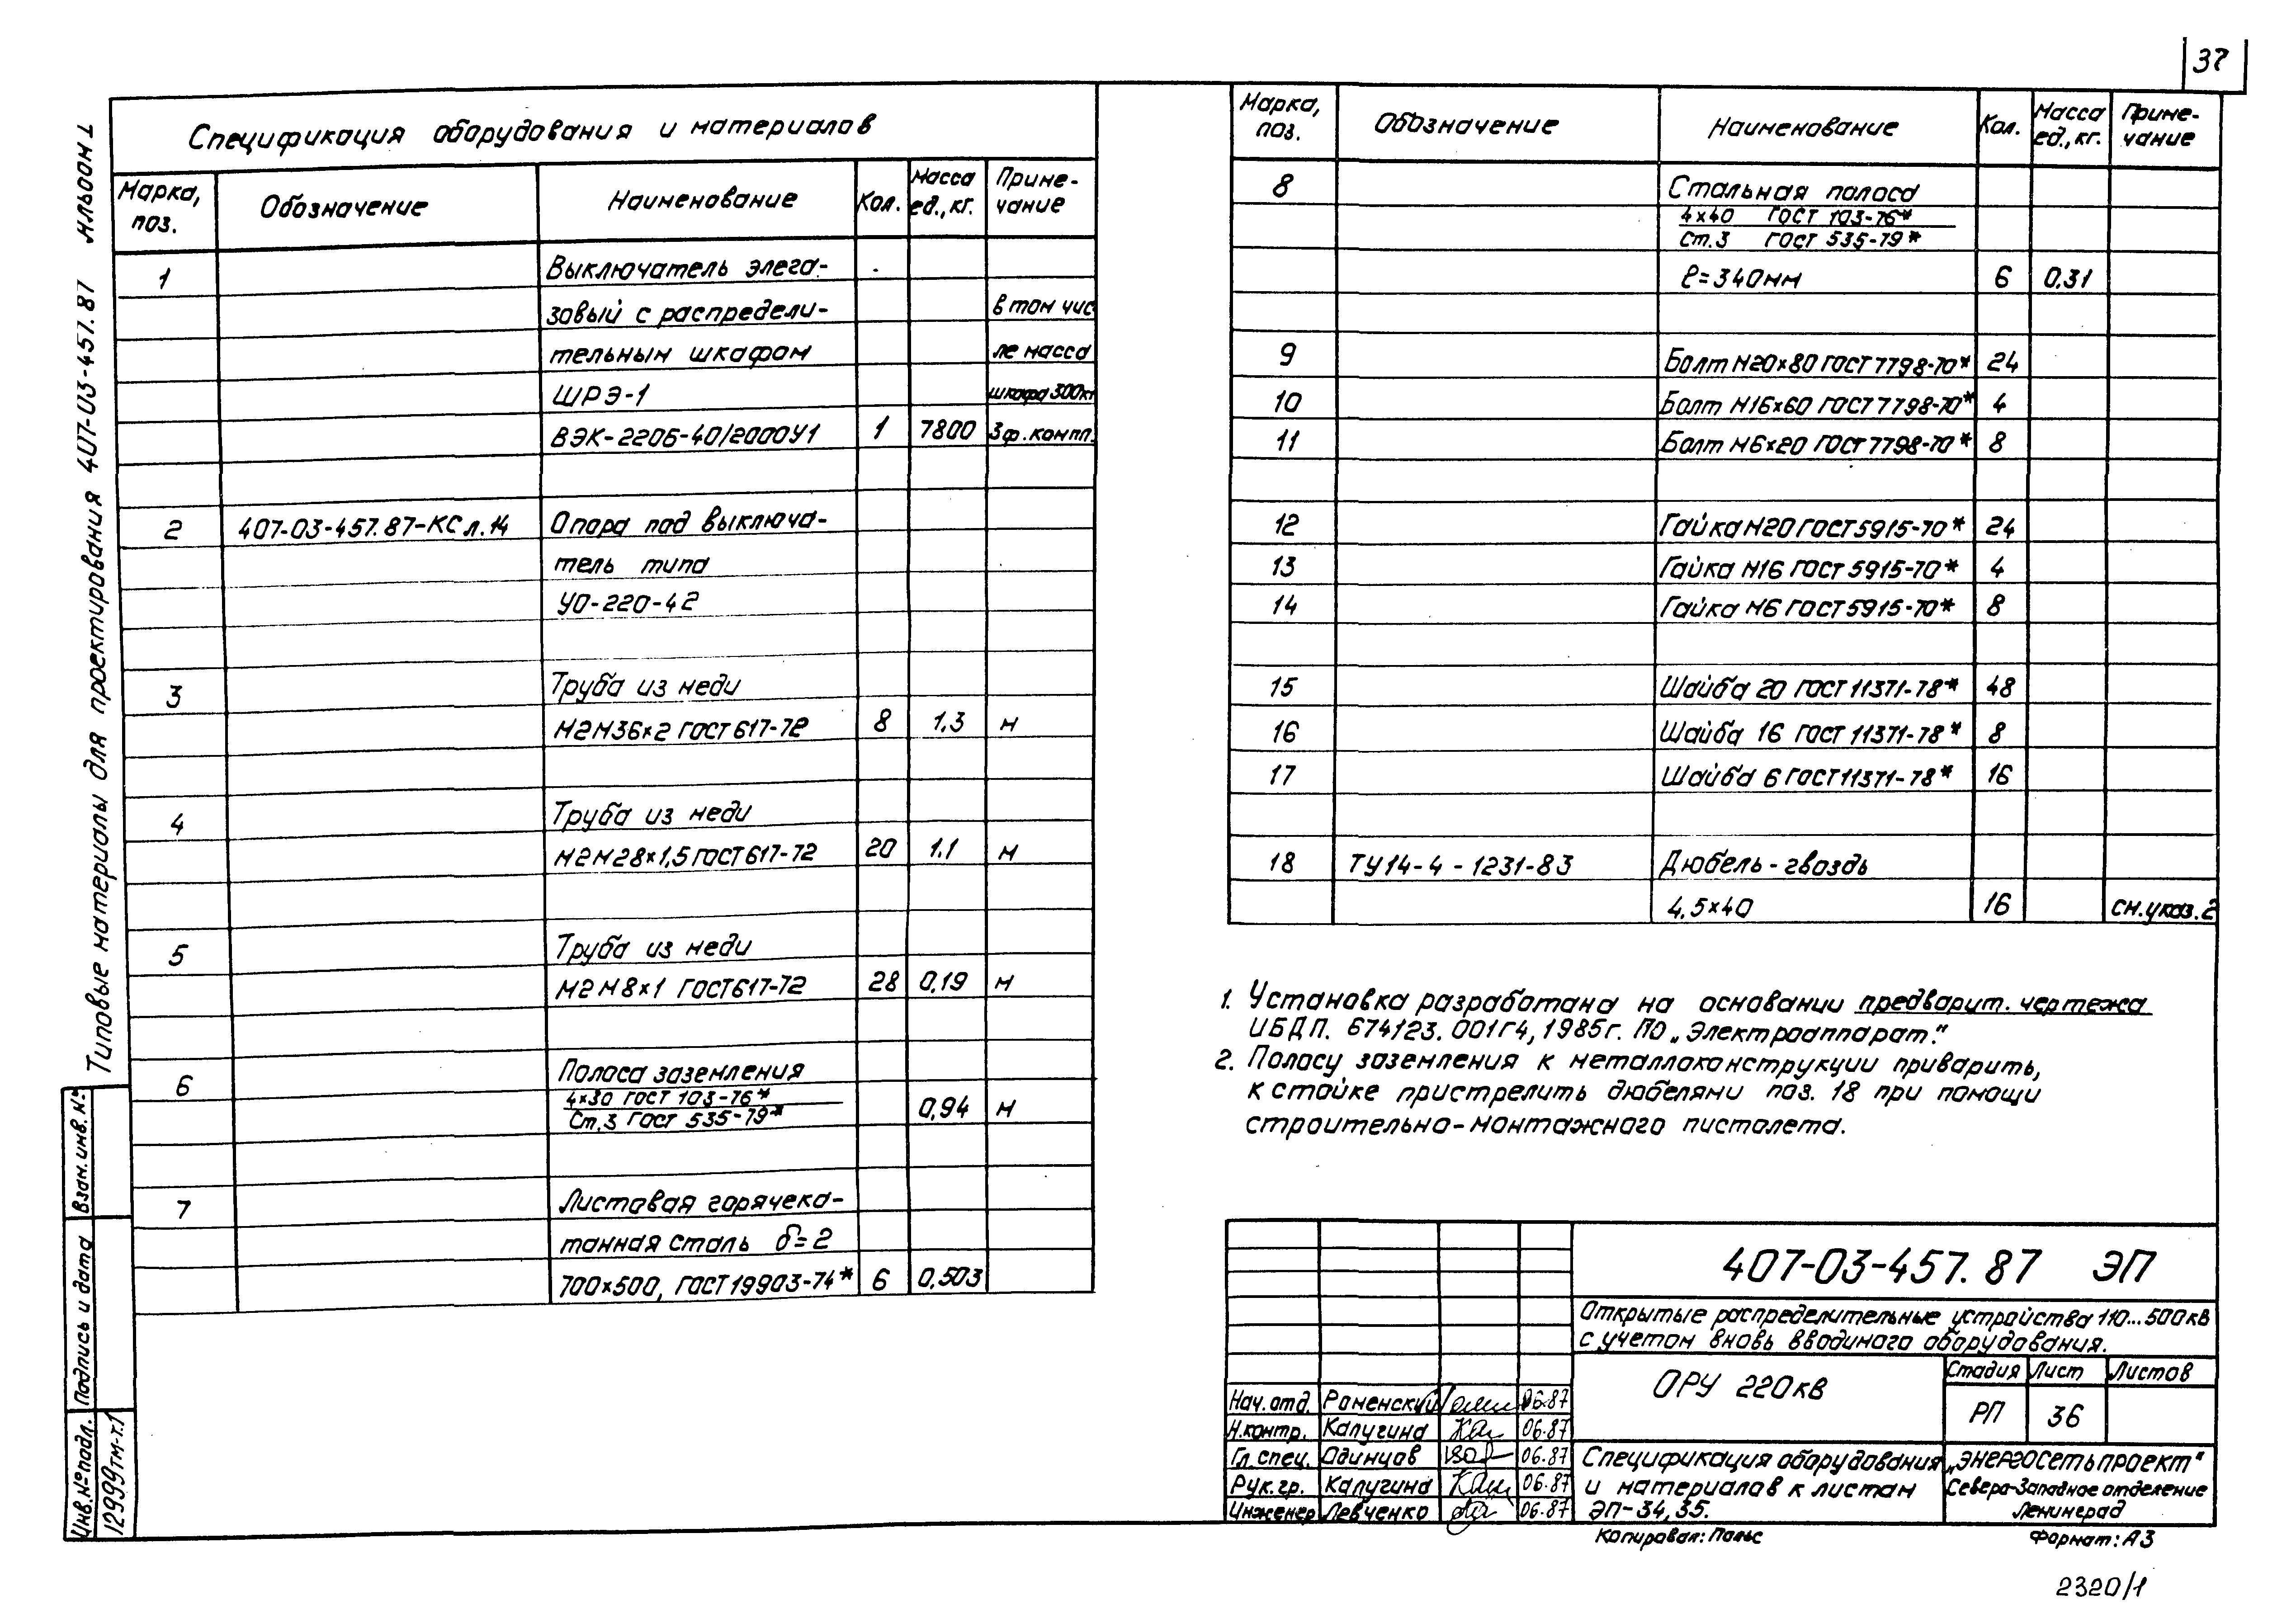 37
Типовые материалы для проектирования 407-03-457.87 Альбом 1
Спецификация оборудования и материалов
Марка, поз. Обозначение Наименование Кол. Масса ед., кг. Приме-чание
1 Выключатель элега-
зовый с распредели- в том чис
тельным шкафом ле масса
ШРЭ-1 шкафа 300кг
ВЭК-220Б-40/2000У1 1 7800 3ф. компл.
2 407-03-457.87-КС л.14 Опора под выключа-
тель типа
УО-220-42
3 Труба из меди
М2М36×2 ГОСТ 617-72 8 1.3 м
4 Труба из меди
М2М28×1,5 ГОСТ 617-72 20 1.1 м
5 Труба из меди
М2М8×1 ГОСТ 617-72 28 0,19 м
6 Полоса заземления
4×30 ГОСТ 103-76*
Ст.3 ГОСТ 535-79* 0,94 м
7 Листовая горячека-
танная сталь δ=2
700×500, ГОСТ 19903-74* 6 0,503
Марка, поз. Обозначение Наименование Кол. Масса ед., кг. Приме-чание
8 Стальная полоса
4×40 ГОСТ 103-76*
Ст.3 ГОСТ 535-79*
ℓ=340мм 6 0,31
9 Болт М20×80 ГОСТ 7798-70* 24
10 Болт М16×60 ГОСТ 7798-70* 4
11 Болт М6×20 ГОСТ 7798-70* 8
12 Гайка М20 ГОСТ 5915-70* 24
13 Гайка М16 ГОСТ 5915-70* 4
14 Гайка М6 ГОСТ 5915-70* 8
15 Шайба 20 ГОСТ 11371-78* 48
16 Шайба 16 ГОСТ 11371-78* 8
17 Шайба 6 ГОСТ 11371-78* 16
18 ТУ14-4-1231-83 Дюбель-гвоздь
4,5×40 16 см.указ.2
1. Установка разработана на основании предварит. чертежа
ИБДП. 674123.001Г4, 1985г. ПО „Электроаппарат."
2. Полосу заземления к металлоконструкции приварить,
к стойке пристрелить дюбелями поз. 18 при помощи
строительно-монтажного пистолета.
407-03-457.87 ЭП
Открытые распределительные устройства 110...500кв
с учетом вновь вводимого оборудования.
ОРУ 220кв
Стадия Лист Листов
РП 36
Нач.отд. Роменский 06.87
Н.контр. Калугина 06.87
Гл.спец. Одинцов 06.87
Рук.гр. Калугина 06.87
Инженер Левченко 06.87
Спецификация оборудования
и материалов к листам
ЭП-34,35.
„Энергосетьпроект"
Северо-Западное отделение
Ленинград
Копировал: Польс
Формат: А3
2320/1
Взам.инв.№
Подпись и дата
Инв.№подл.
12999тм-т.1